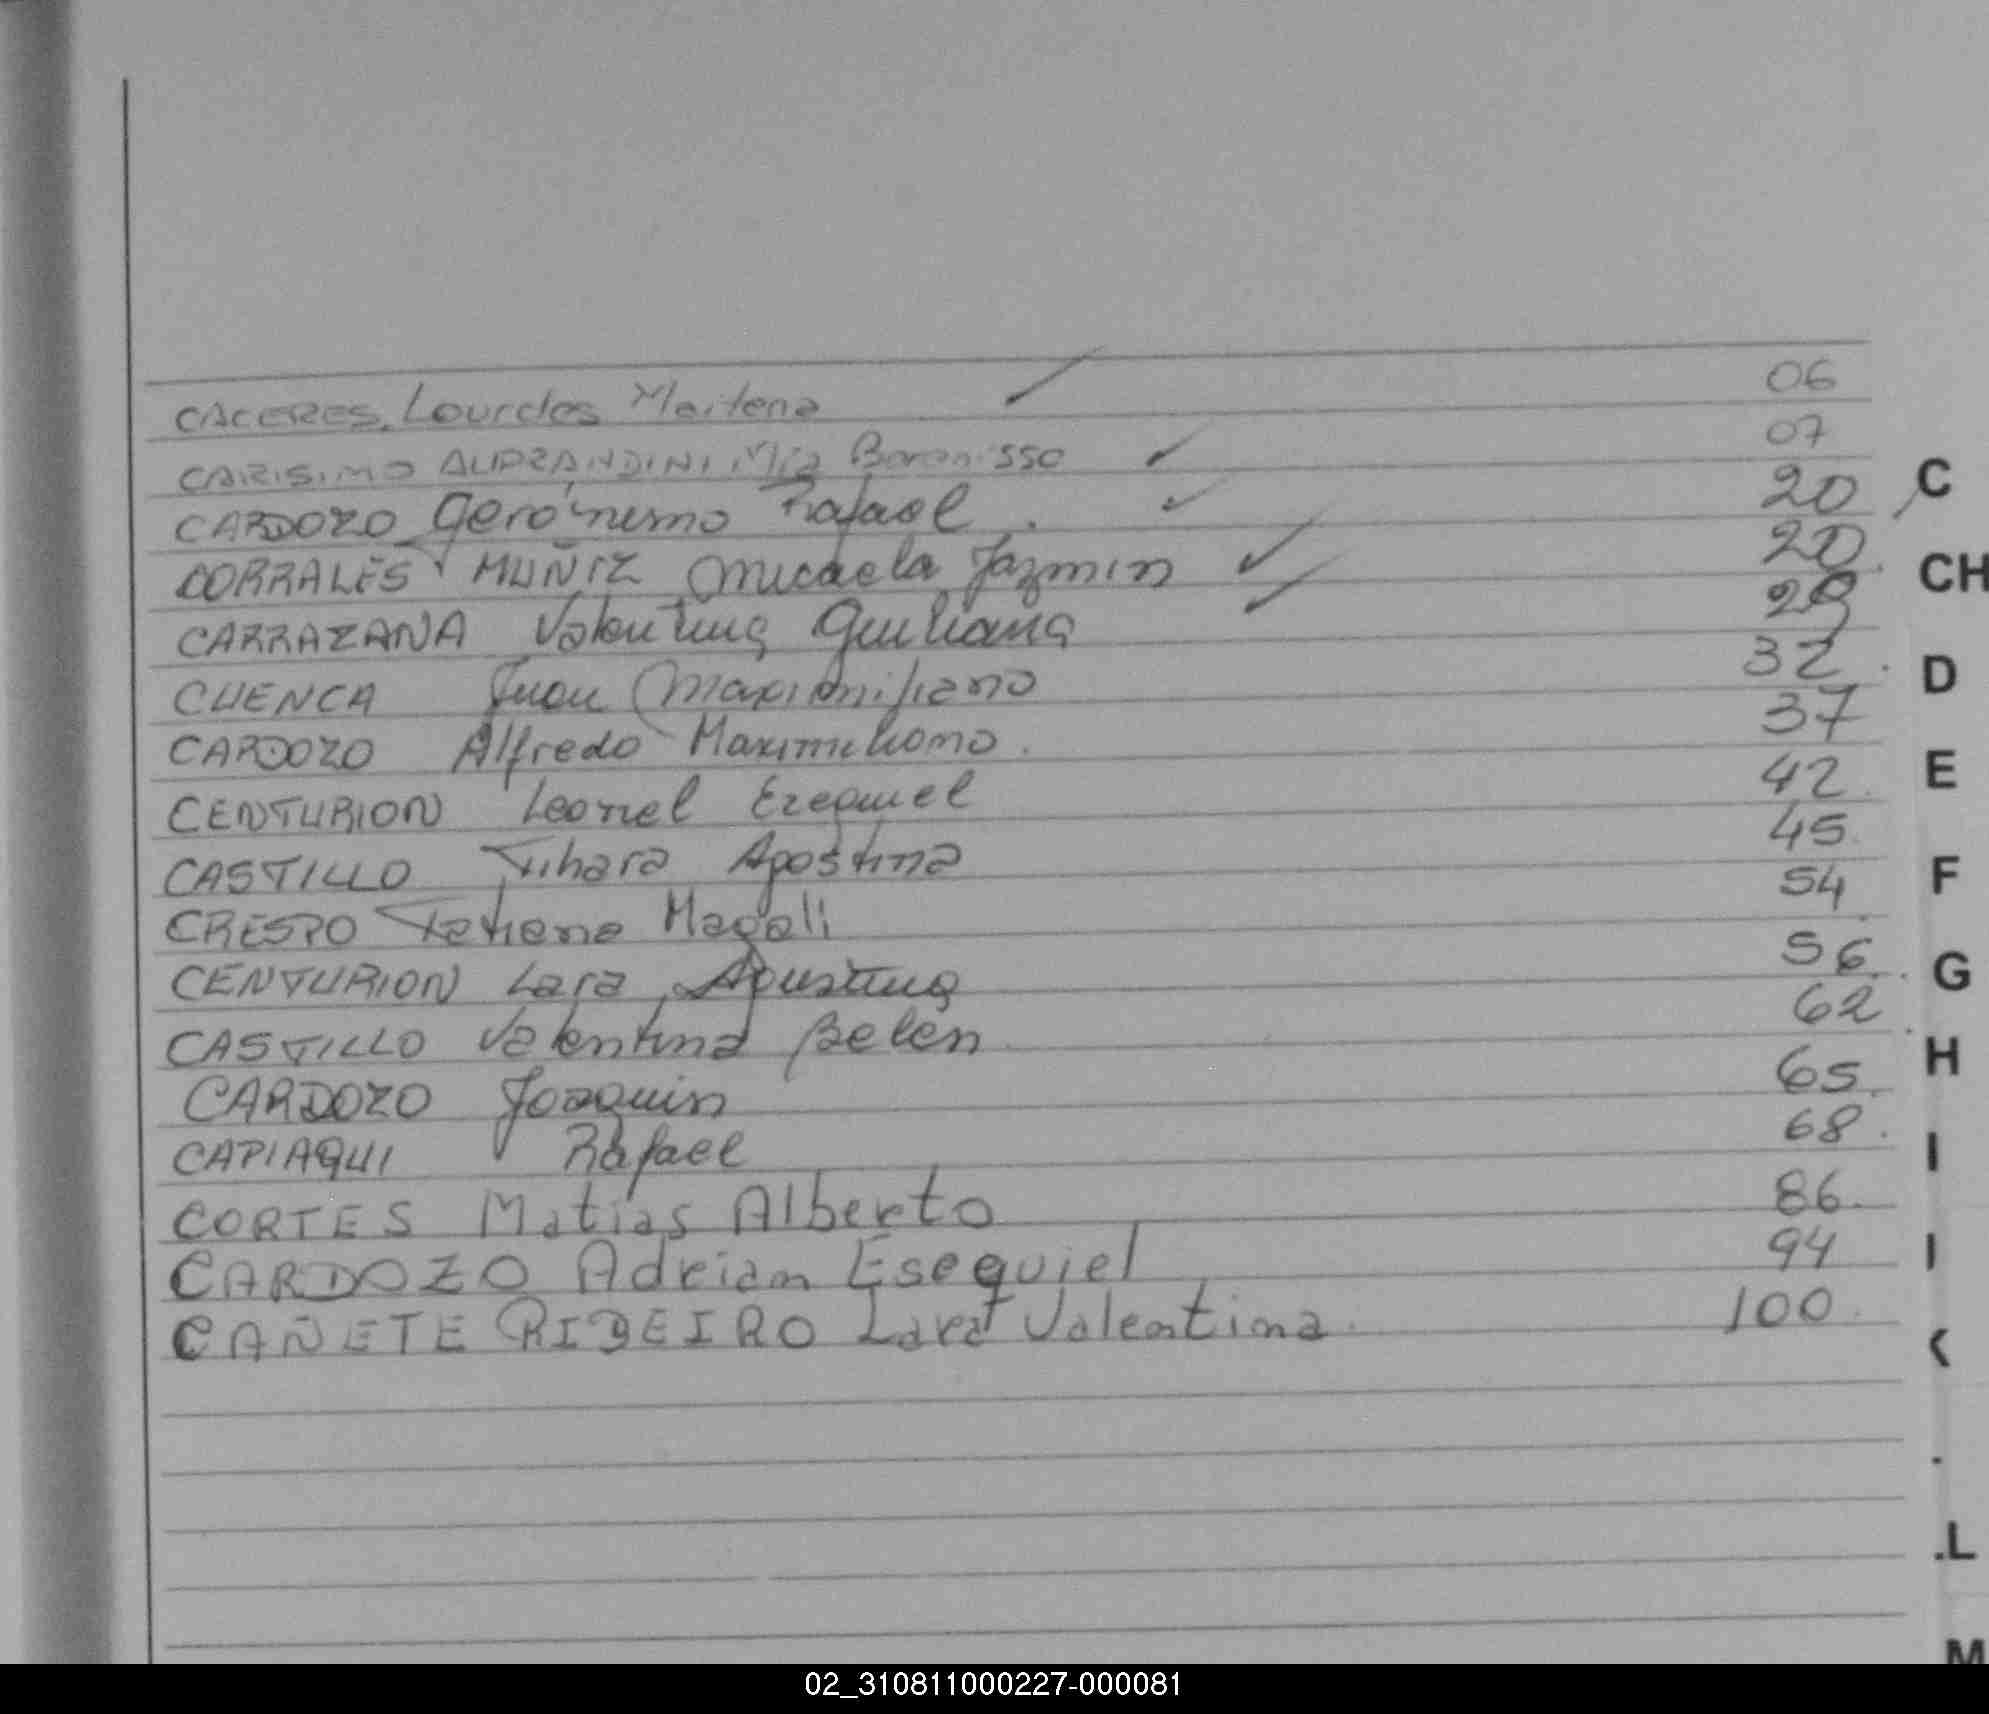 CACERES, Lourdes Mailena 06
CARISIMO ALIPRANDINI Mia 07
CARDOZO Gerónimo Rafael. 20
CORRALES MUÑIZ Micaela Jazmin 20
CARRAZANA Valentina Giuliana 29
CUENCA Juan Maximiliano 32
CARDOZO Alfredo Maximiliano. 37
CENTURION Leonel Ezequiel 42
CASTILLO Tihara Agostina 45
CRESPO Tatiana Magali 54
CENTURION Lara Agustina 56
CASTILLO Valentina Belén 62
CARDOZO Joaquin 65
CAPIAQUI Rafael 68
CORTES Matias Alberto 86
CARDOZO Adrian Esequiel 94
CAÑETE RIBEIRO Lara Valentina 100
C
CH
D
E
F
G
H
I
L
M
02_310811000227-000081